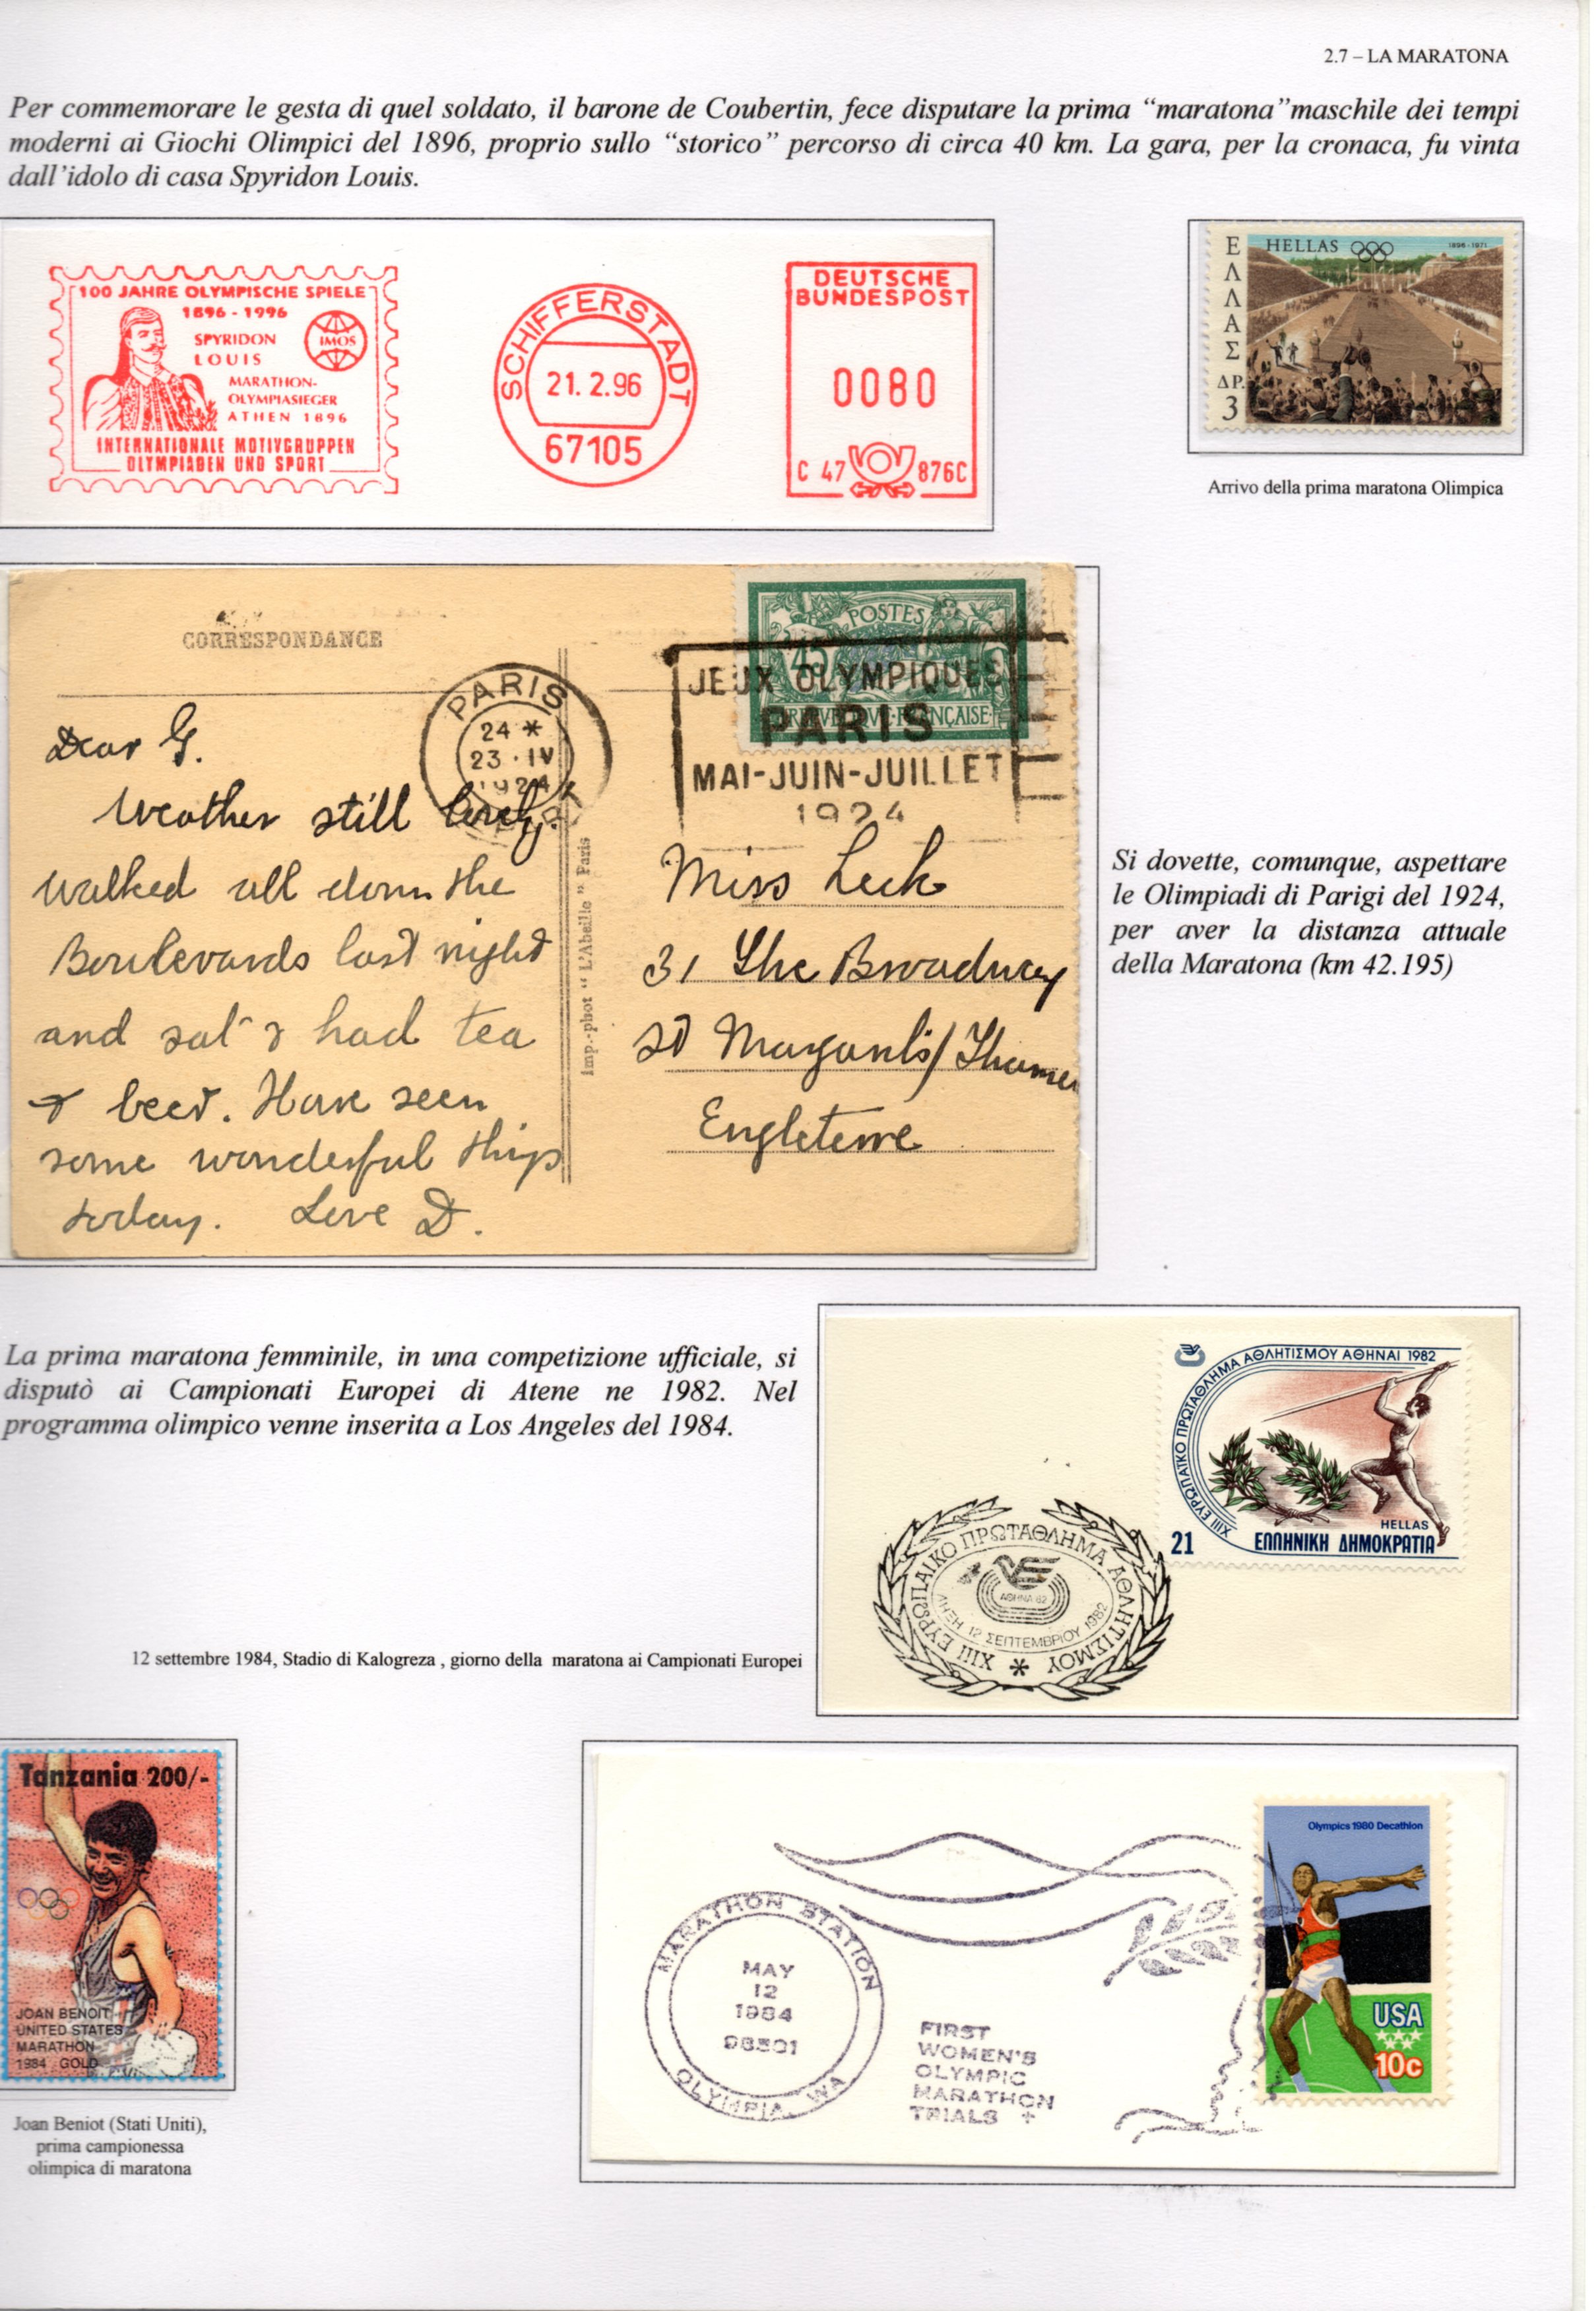 2.7 – LA MARATONA
Per commemorare le gesta di quel soldato, il barone de Coubertin, fece disputare la prima “maratona”maschile dei tempi
moderni ai Giochi Olimpici del 1896, proprio sullo “storico” percorso di circa 40 km. La gara, per la cronaca, fu vinta
dall’idolo di casa Spyridon Louis.
100 JAHRE OLYMPISCHE SPIELE
1896 - 1996
SPYRIDON
LOUIS
IMOS
MARATHON-
OLYMPIASIEGER
ATHEN 1896
INTERNATIONALE MOTIVGRUPPEN
OLYMPIADEN UND SPORT
SCHIFFERSTADT
21.2.96
67105
DEUTSCHE
BUNDESPOST
0080
C 47 876C
ΕΛΛΑΣ
HELLAS
1896-1971
ΔΡ.
3
Arrivo della prima maratona Olimpica
CORRESPONDANCE
PARIS
24 *
23 · IV
1924
POSTES
45
JEUX OLYMPIQUES
PARIS
MAI-JUIN-JUILLET
1924
Dear G.
Weather still lovely.
walked all down the
Boulevards last night
and sat & had tea
& beer. Have seen
some wonderful things
today. Love D.
Imp.-phot “ L'Abeille ” Paris
Miss Leck
31 The Broadway
St Margarets/Thames
Engleterre
Si dovette, comunque, aspettare
le Olimpiadi di Parigi del 1924,
per aver la distanza attuale
della Maratona (km 42.195)
La prima maratona femminile, in una competizione ufficiale, si
disputò ai Campionati Europei di Atene ne 1982. Nel
programma olimpico venne inserita a Los Angeles del 1984.
XIII ΕΥΡΩΠΑΪΚΟ ΠΡΩΤΑΘΛΗΜΑ ΑΘΛΗΤΙΣΜΟΥ ΑΘΗΝΑΙ 1982
HELLAS
21 ΕΛΛΗΝΙΚΗ ΔΗΜΟΚΡΑΤΙΑ
XIII ΕΥΡΩΠΑΪΚΟ ΠΡΩΤΑΘΛΗΜΑ ΑΘΛΗΤΙΣΜΟΥ
ΑΘΗΝΑ 82
ΛΗΞΗ 12 ΣΕΠΤΕΜΒΡΙΟΥ 1982
12 settembre 1984, Stadio di Kalogreza , giorno della maratona ai Campionati Europei
Tanzania 200/-
JOAN BENOIT
UNITED STATES
MARATHON
1984 GOLD
Joan Beniot (Stati Uniti),
prima campionessa
olimpica di maratona
MARATHON STATION
MAY
12
1984
98501
OLYMPIA, WA
FIRST
WOMEN'S
OLYMPIC
MARATHON
TRIALS +
Olympics 1980 Decathlon
USA
10c